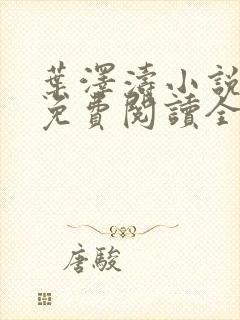 葉澤濤小說
免費閱讀全
唐駿